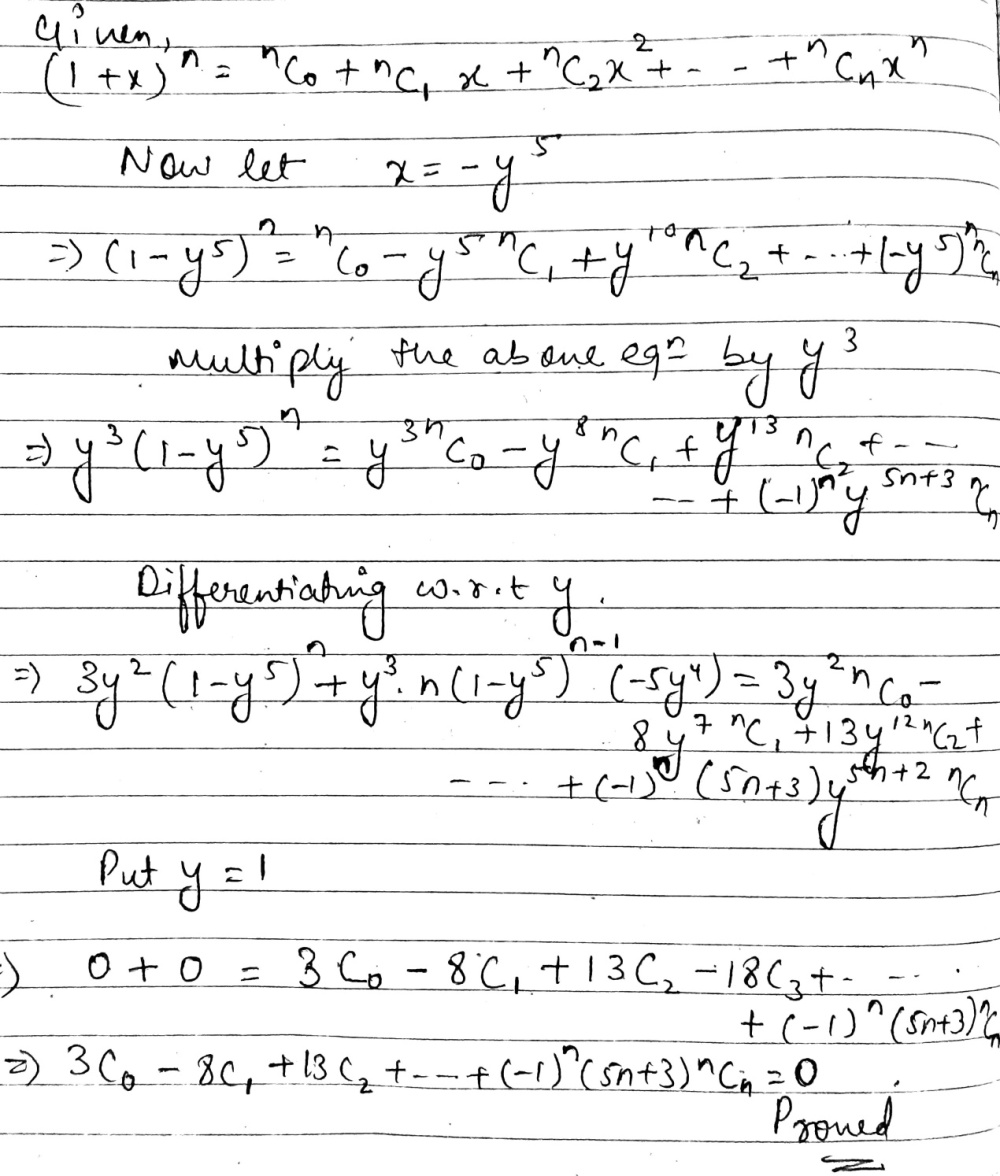 Given,
(1+x)ⁿ = ⁿC₀ + ⁿC₁ x + ⁿC₂x² + - - + ⁿCₙxⁿ
Now let x = -y⁵
=> (1-y⁵)ⁿ = ⁿC₀ - y⁵ ⁿC₁ + y¹⁰ ⁿC₂ + - .. + (-y⁵)ⁿ ⁿCₙ
Multiply the above eqⁿ by y³
=> y³(1-y⁵)ⁿ = y³ ⁿC₀ - y⁸ ⁿC₁ + y¹³ ⁿC₂ + - --
-- + (-1)ⁿ y⁵ⁿ⁺³ ⁿCₙ
Differentiating w.r.t y.
=> 3y²(1-y⁵)ⁿ + y³. n(1-y⁵)ⁿ⁻¹ (-5y⁴) = 3y² ⁿC₀ -
8y⁷ ⁿC₁ + 13y¹² ⁿC₂ +
- - - . + (-1)ⁿ (5n+3)y⁵ⁿ⁺² ⁿCₙ
Put y = 1
=> 0 + 0 = 3C₀ - 8C₁ + 13C₂ - 18C₃ + - - - .
+ (-1)ⁿ (5n+3)ⁿCₙ
=> 3C₀ - 8C₁ + 13C₂ + - -- + (-1)ⁿ(5n+3)ⁿCₙ = 0
Proved